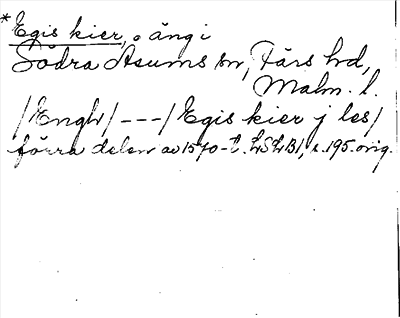 *Egis kier, o äng i
Södra Åsums sn, Färs hd,
Malm. l.
/Engh/ --- / Egis kier j les/
förra delen av 1570-t. LSLB1, s. 195. orig.